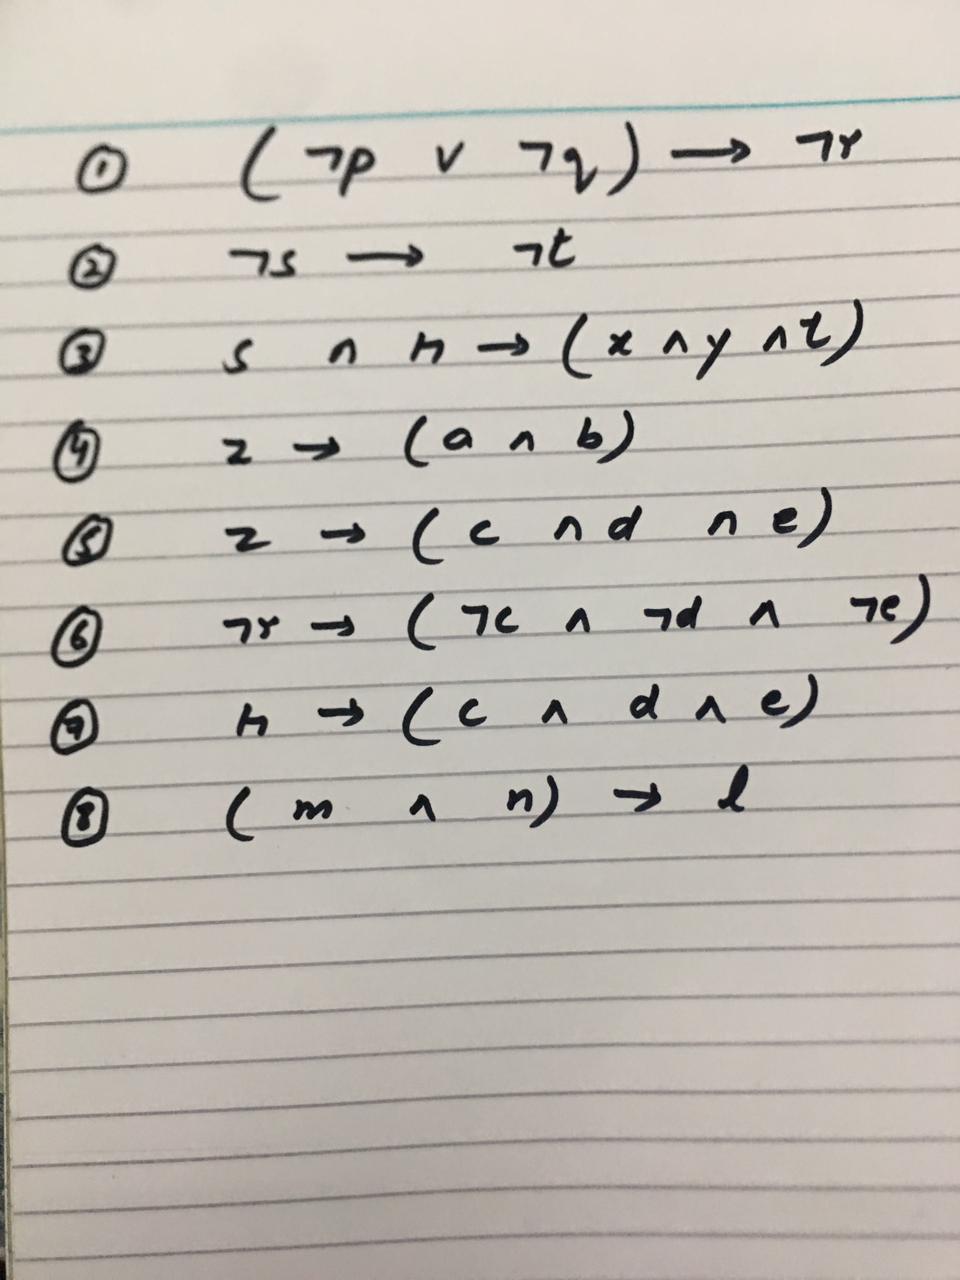 ① (¬p ∨ ¬q) → ¬r
② ¬s → ¬t
③ s ∧ н → (x ∧ y ∧ t)
④ z → (a ∧ b)
⑤ z → (c ∧ d ∧ e)
⑥ ¬r → (¬c ∧ ¬d ∧ ¬e)
⑦ н → (c ∧ d ∧ e)
⑧ (m ∧ n) → l